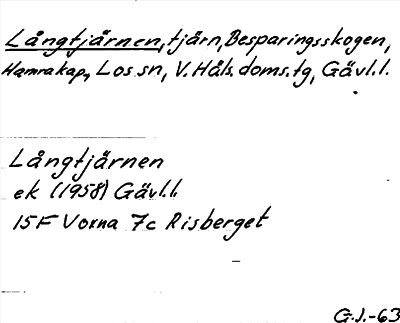 Långtjärnen, tjärn, Besparingsskogen,
Hamra kap, Los sn, V. Häls. doms. tg, Gävl.l.
Långtjärnen
ek (1958) Gävl.l.
15F Voxna 7c Risberget
G.J.-63